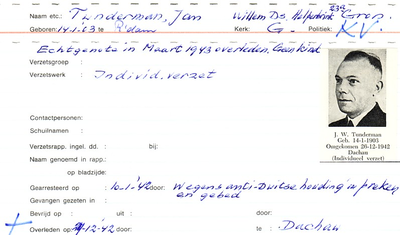 Naam etc.: Tunderman, Jan Willem Ds. 239 Gron.
Geboren: 14-1-03 te R'dam Kerk: G. Politiek: KV.
Echtgenote in Maart 1943 overleden, Geen kind
Verzetsgroep :
Verzetswerk : Individ. verzet
Contactpersonen:
Schuilnamen :
Verzetsrapp. ingel. dd. : bij:
Naam genoemd in rapp.:
op bladzijde:
Gearresteerd op : 10-1-'42 door: Wegens anti-Duitse houding in preken
Gevangen gezeten in : en gebed
Bevrijd op : uit : door:
Overleden op : -12-'42 te : Dachau
J. W. Tunderman
Geb. 14-1-1903
Omgekomen 26-12-1942
Dachau
(Individueel verzet)